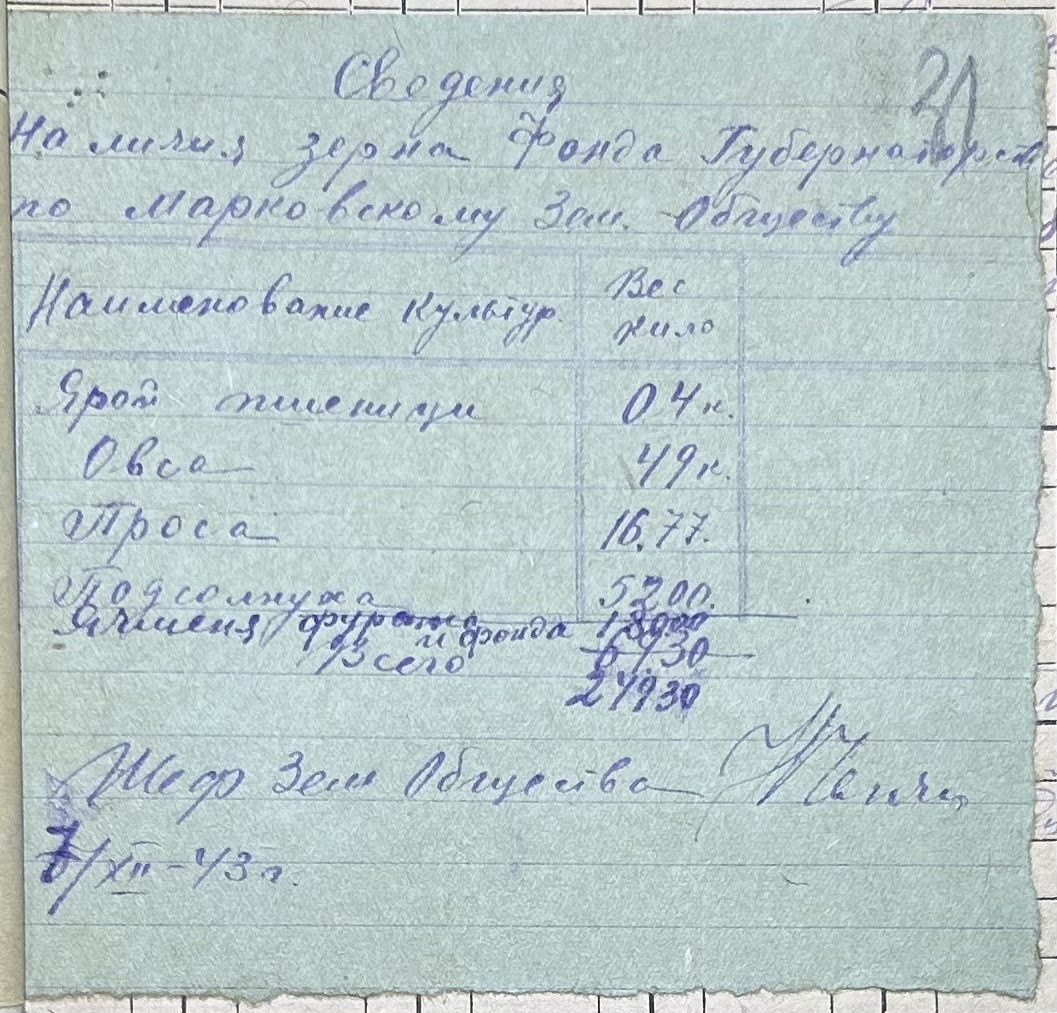 31
Сведения
Наличия зерна Фонда Губернаторств
по Марковскому Зем. Обществу
Наименование культур. Вес кило
Ярой пшеници 04 к.
Овса 49 к.
Проса 16.77.
Подсолнуха 5200.
Ячменя фуража и фонда 18000
Всего 6730
24930
Шеф Зем Общества
7/XII-43 г.